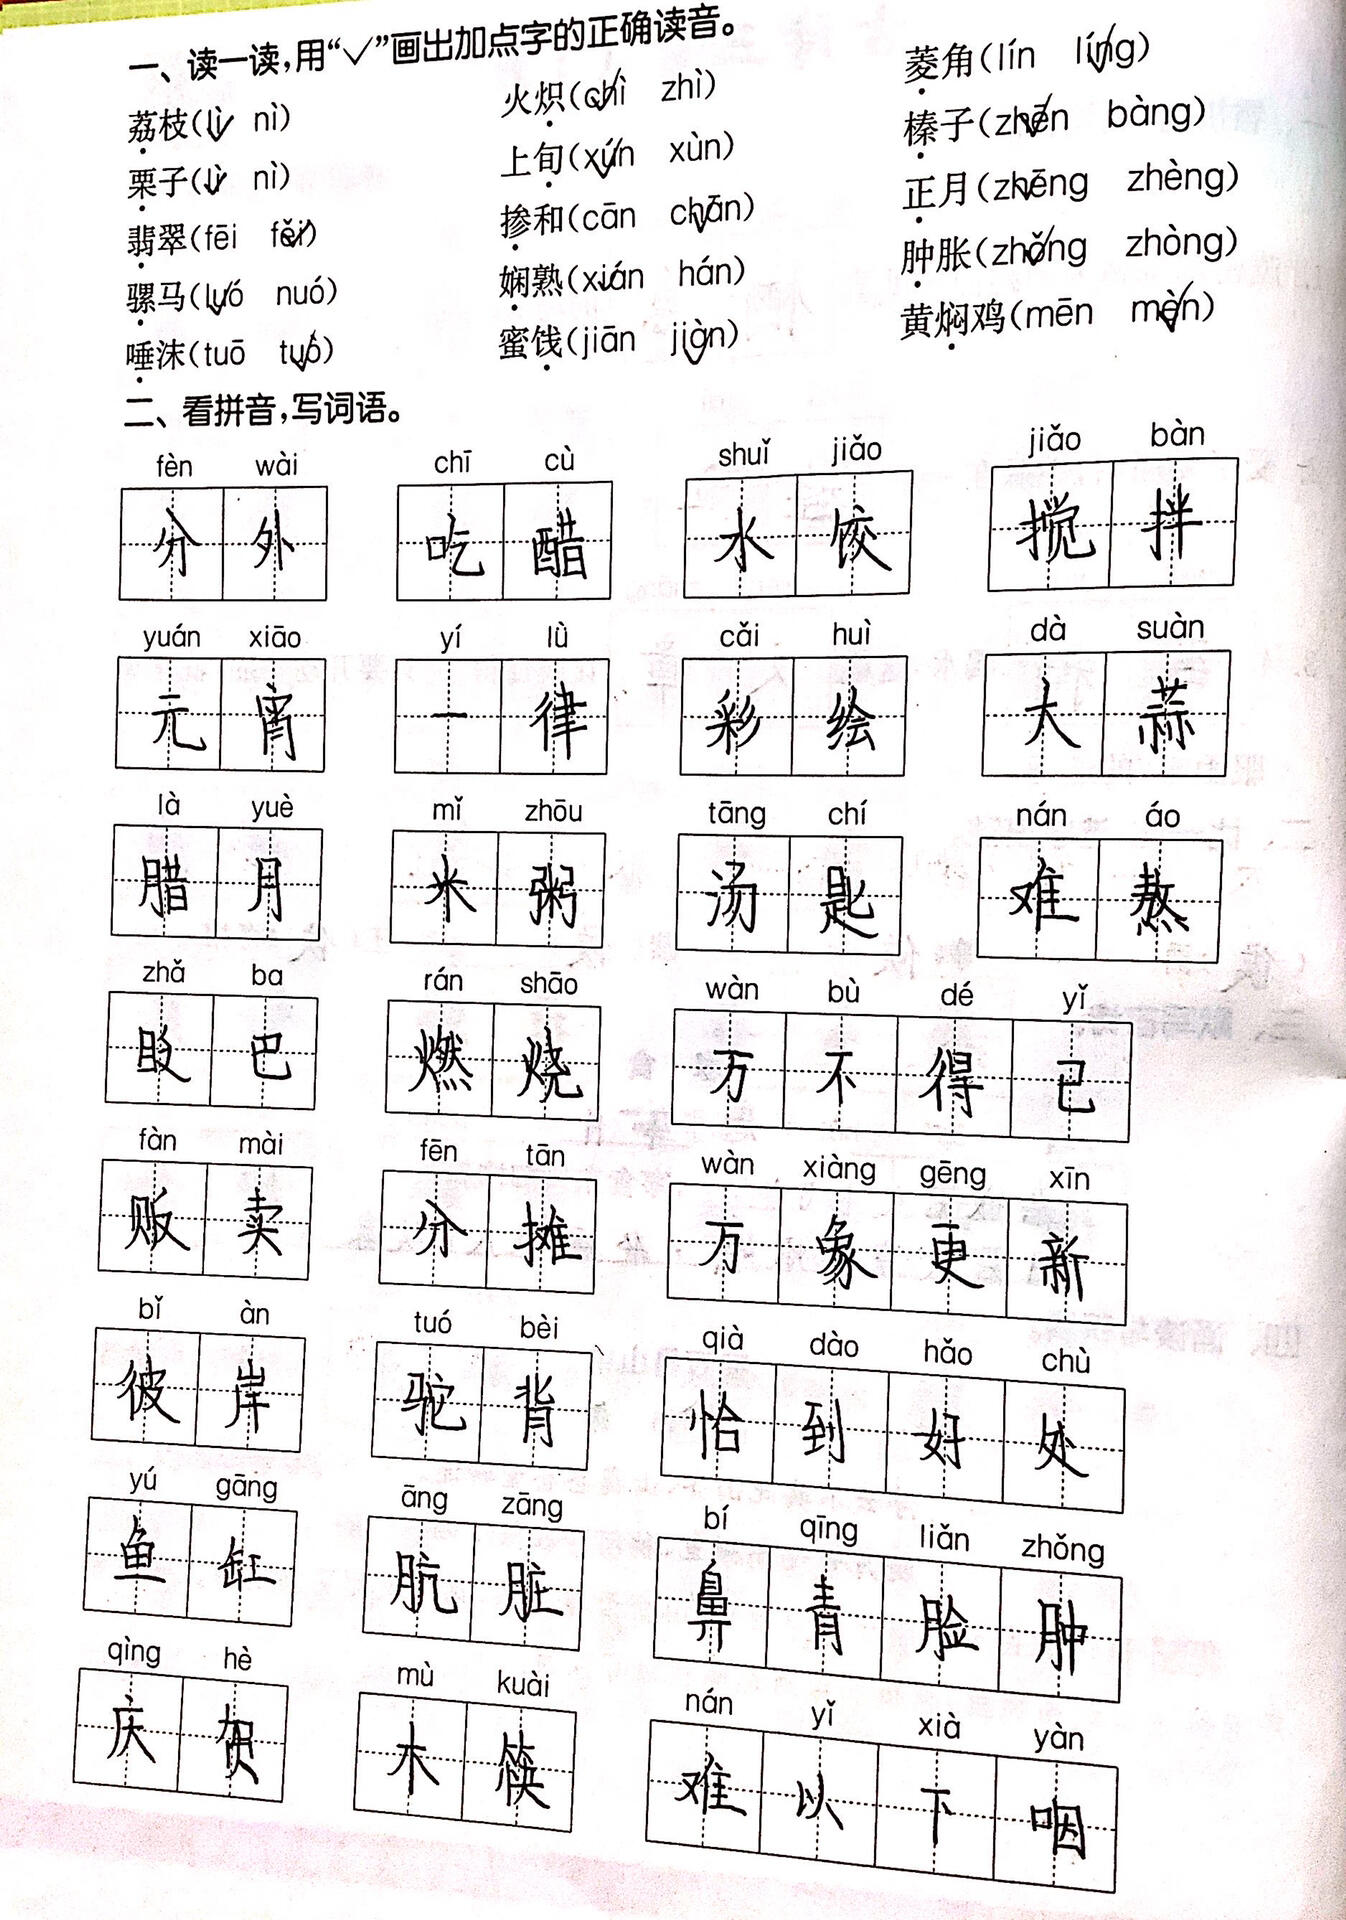 一、读一读，用“✓”画出加点字的正确读音。
荔枝(lì✓ nì) 火炽(chì✓ zhì) 菱角(lín líng✓)
栗子(lì✓ nì) 上旬(xún✓ xùn) 榛子(zhēn✓ bàng)
翡翠(fēi fěi✓) 掺和(cān chān✓) 正月(zhēng✓ zhèng)
骡马(luó✓ nuó) 娴熟(xián✓ hán) 肿胀(zhǒng✓ zhòng)
唾沫(tuō tuò✓) 蜜饯(jiān jiàn✓) 黄焖鸡(mēn mèn✓)
二、看拼音，写词语。
fèn wài chī cù shuǐ jiǎo jiǎo bàn
分外 吃醋 水饺 搅拌
yuán xiāo yí lǜ cǎi huì dà suàn
元宵 一律 彩绘 大蒜
là yuè mǐ zhōu tāng chí nán áo
腊月 米粥 汤匙 难熬
zhǎ ba rán shāo wàn bù dé yǐ
眨巴 燃烧 万不得已
fàn mài fēn tān wàn xiàng gēng xīn
贩卖 分摊 万象更新
bǐ àn tuó bèi qià dào hǎo chù
彼岸 驼背 恰到好处
yú gāng āng zāng bí qīng liǎn zhǒng
鱼缸 肮脏 鼻青脸肿
qìng hè mù kuài nán yǐ xià yàn
庆贺 木筷 难以下咽